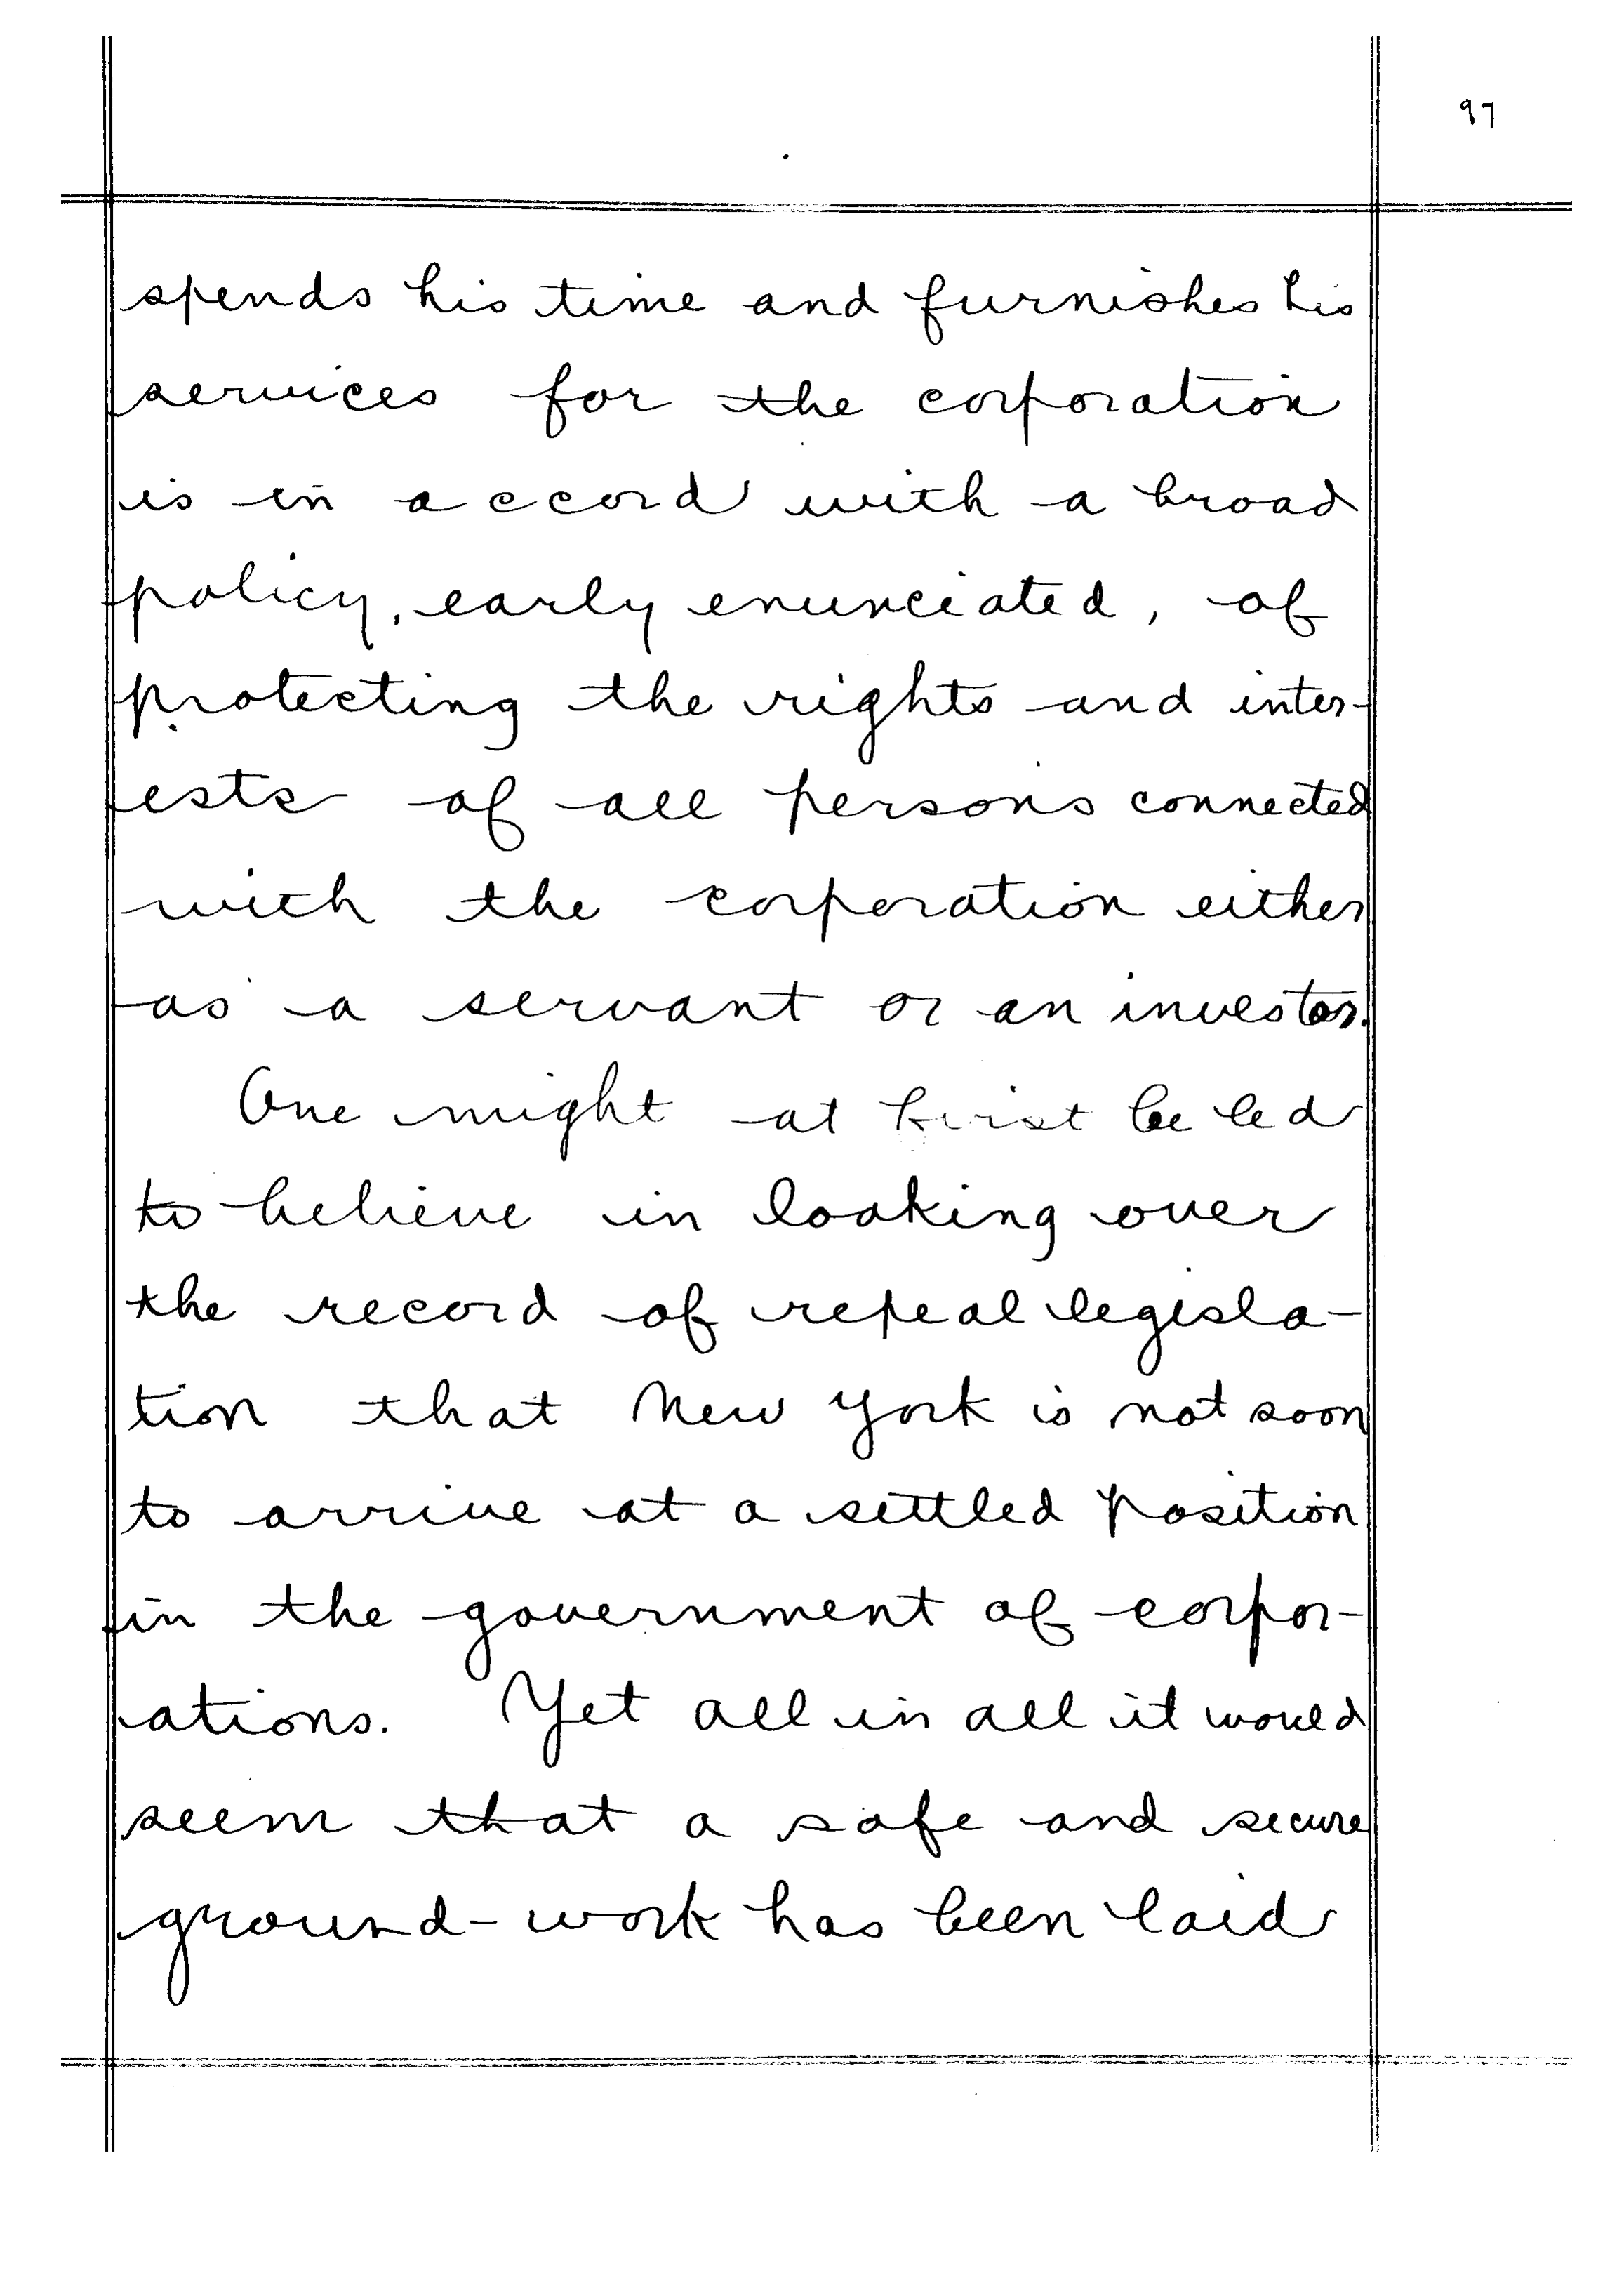 97
spends his time and furnishes his
services for the corporation
is in accord with a broad
policy, early enunciated, of
protecting the rights and inter-
ests of all persons connected
with the corporation either
as a servant or an investor.
One might at first be led
to believe in looking over
the record of repeal legisla-
tion that New York is not soon
to arrive at a settled position
in the government of corpor-
ations. Yet all in all it would
seem that a safe and secure
ground-work has been laid